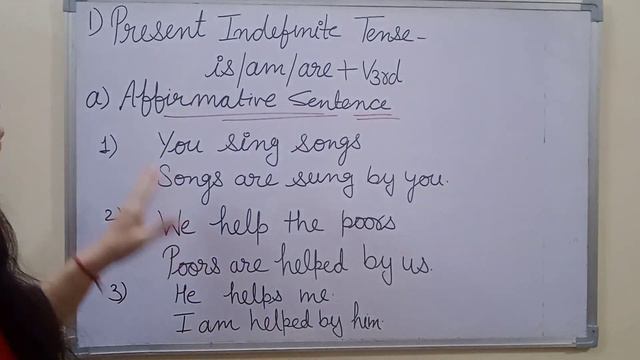 1) Present Indefinite Tense-
is/am/are + V3rd
a) Affirmative Sentence
1) You sing songs
Songs are sung by you.
2) We help the poors
Poors are helped by us.
3) He helps me.
I am helped by him.